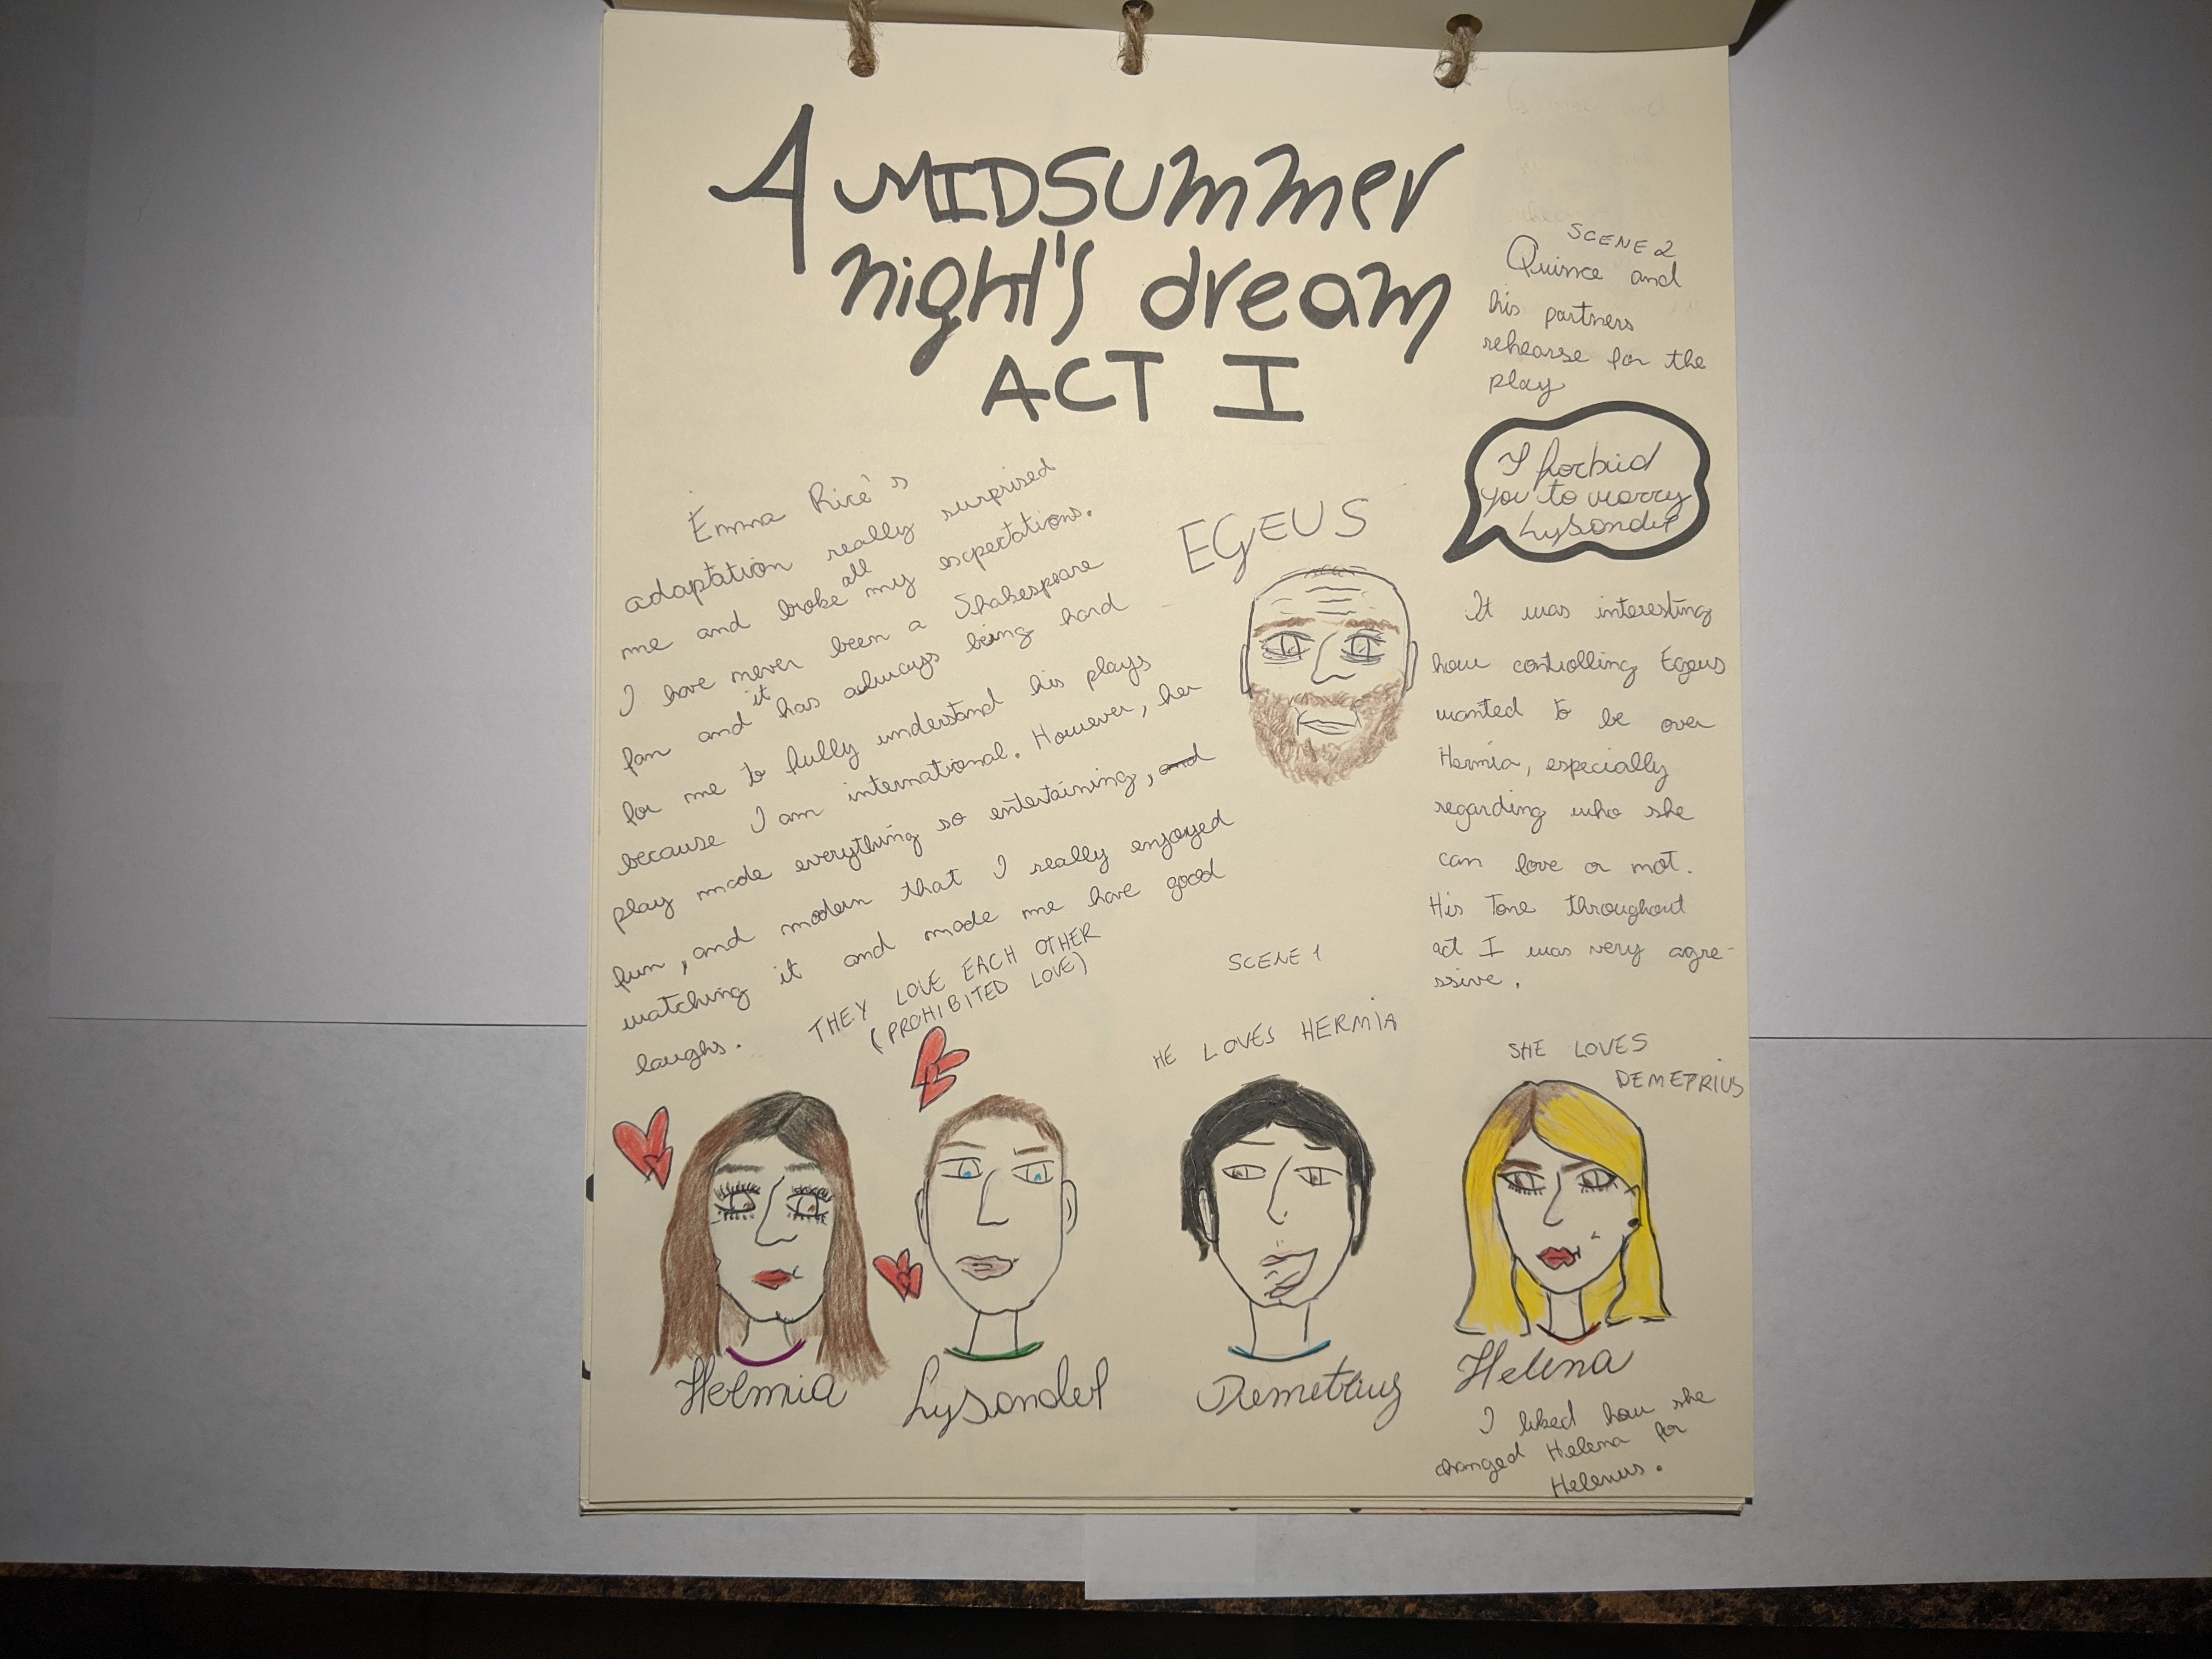 A MIDSUmmer
night's dream
ACT I
SCENE 2
Quince and
his partners
rehearse for the
play
I forbid
you to marry
Lysander
Emma Rice's
adaptation really surprised
me and broke all my expectations.
I have never been a Shakespeare
fan and it has always being hard
for me to fully understand his plays
because I am international. However, her
play made everything so entertaining, and
fun, and modern that I really enjoyed
watching it and made me have good
laughs.
EGEUS
It was interesting
how controlling Egeus
wanted to be over
Hermia, especially
regarding who she
can love or not.
His Tone throughout
act I was very agre-
ssive.
SCENE 1
THEY LOVE EACH OTHER
(PROHIBITED LOVE)
HE LOVES HERMIA
SHE LOVES
DEMETRIUS
Hermia
Lysander
Demetrius
Helena
I liked how she
changed Helena for
Helenus.